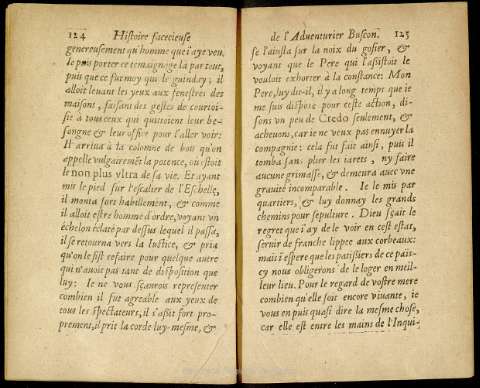 124 Histoire facecieuse
genereusement qu'homme que i'aye veu,
Ie puis porter ce temoignage là par tout,
puis que ce fut moy qui le guinday; il
alloit leuant les yeux aux fenestres des
maisons, faisant des gestes de courtoi-
sie à tous ceux qui quittoient leur be-
songne & leur office pour l'aller voir:
Il arriua à la colomne de bois qu'on
appelle vulgairemēt la potence, où estoit
le non plus vltra de sa vie. Et ayant
mis le pied sur l'escalier de l'Eschelle,
il monta fort habillement, & comme
il alloit estre homme d'ordre, voyant vn
échelon éclaté par dessus lequel il passa,
il se retourna vers la Iustice, & pria
qu'on le fist refaire pour quelque autre
qui n'auoit pas tant de disposition que
luy: Ie ne vous sçaurois representer
combien il fut agreable aux yeux de
tous les spectateurs, il s'assit fort pro-
prement, il prit la corde luy-mesme, &
de l'Aduenturier Buscon. 125
se l'aiusta sur la noix du gosier, &
voyant que le Pere qui l'assistoit le
vouloit exhorter à la constance: Mon
Pere, luy dit-il, il y a long temps que ie
me suis disposé pour ceste action, di-
sons vn peu de Credo seulement, &
acheuons, car ie ne veux pas ennuyer la
compagnie: cela fut fait ainsi, puis il
tomba sans plier les iarets, ny faire
aucune grimasse, & demeura auec vne
grauité incomparable. Ie le mis par
quartiers, & luy donnay les grands
chemins pour sepulture. Dieu sçait le
regret que i'ay de le voir en cest estat,
seruir de franche lippee aux corbeaux:
mais i'espere que les patissiers de ce païs-
cy nous obligerons de le loger en meil-
leur lieu. Pour le regard de vostre mere
combien qu'elle soit encore viuante, ie
vous en puis quasi dire la mesme chose,
car elle est entre les mains de l'Inqui-